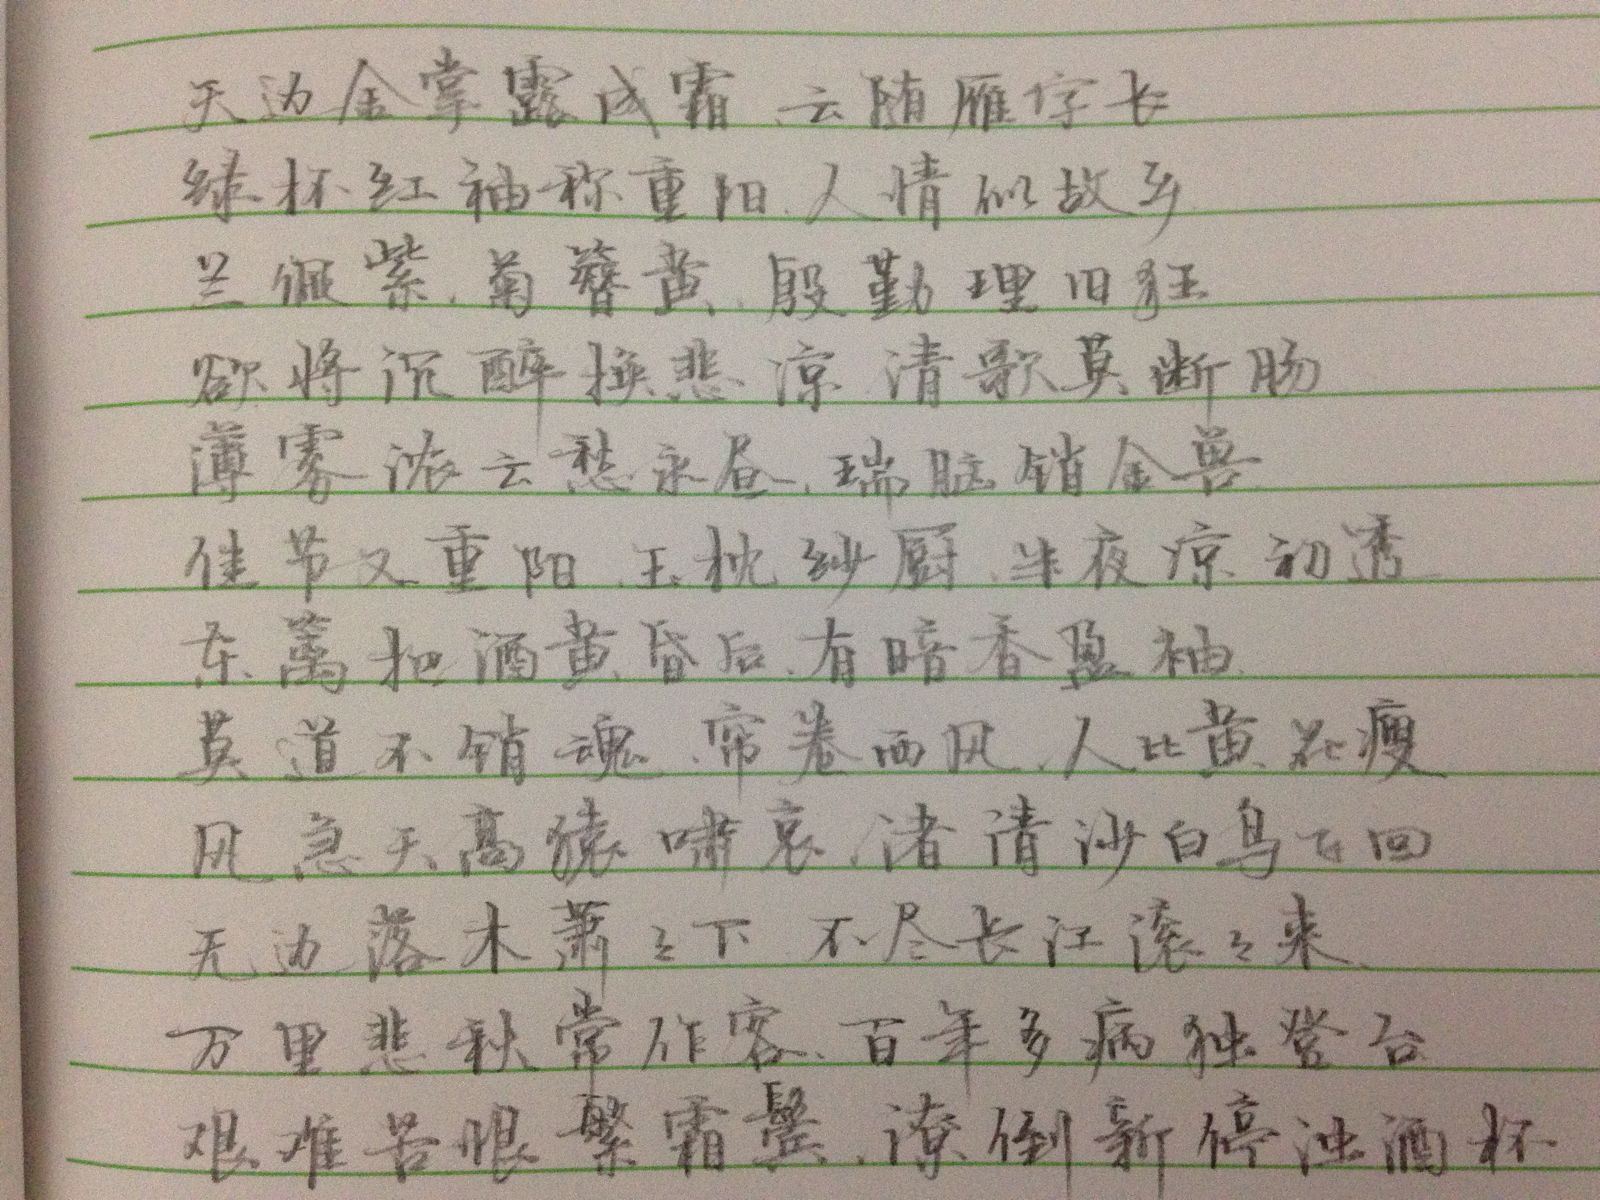 天边金掌露成霜、云随雁字长
绿杯红袖称重阳、人情似故乡
兰佩紫、菊簪黄、殷勤理旧狂
欲将沉醉换悲凉、清歌莫断肠
薄雾浓云愁永昼、瑞脑销金兽
佳节又重阳、玉枕纱厨、半夜凉初透
东篱把酒黄昏后、有暗香盈袖
莫道不销魂、帘卷西风、人比黄花瘦
风急天高猿啸哀、渚清沙白鸟飞回
无边落木萧々下、不尽长江滚々来
万里悲秋常作客、百年多病独登台
艰难苦恨繁霜鬓、潦倒新停浊酒杯